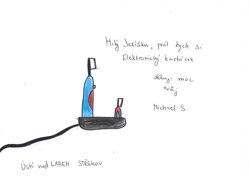 Milý Ježíšku, přál bych si
Elektronický kartáček
děkuji moc
Tvůj
Michael S.
Ústí nad LABEM STŘEKOV